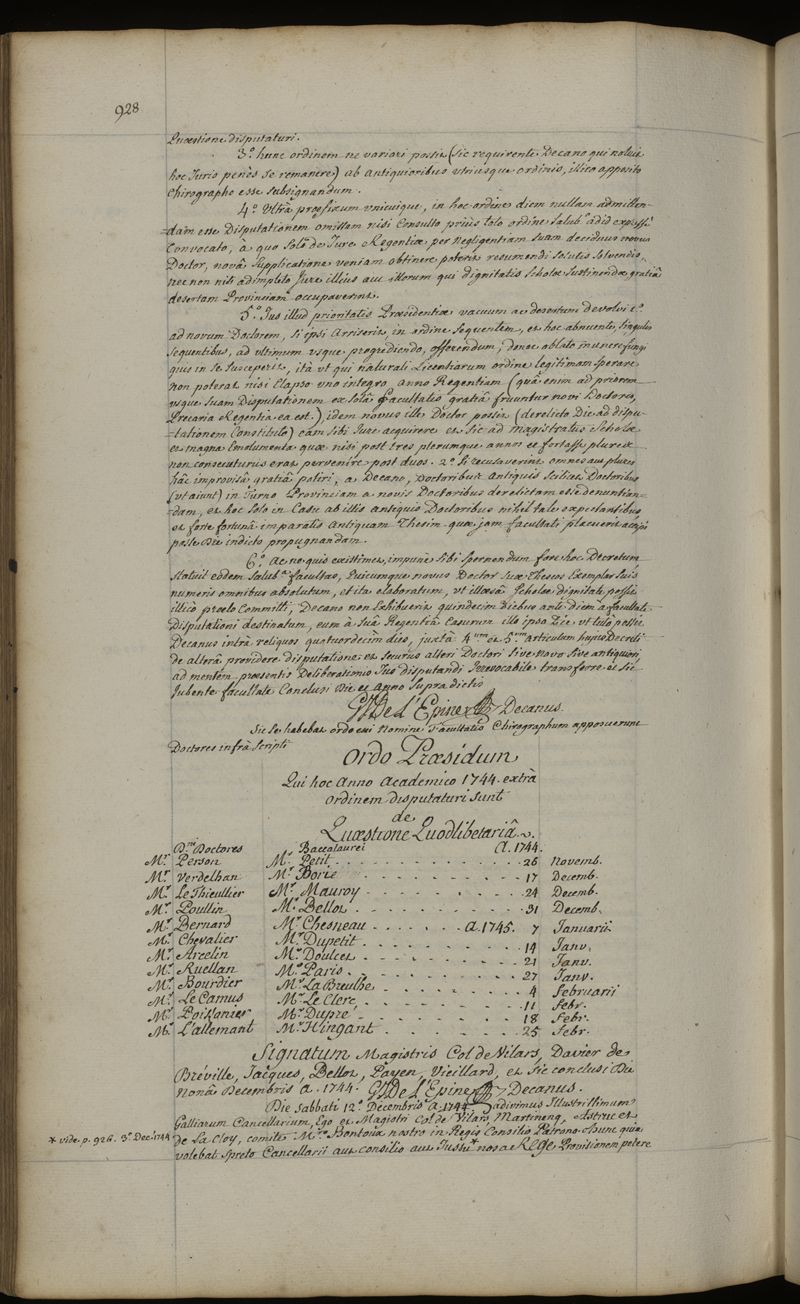 928
Quæstione disputaturi.
3.º hunc ordinem ne variari possit (sic requirente Decano qui noluit
hoc Juris penès se remanere) ab antiquioribus utriusque ordinis, illico apposito
Chirographo esse subsignandum.
4.º Ultrà præfixum unicuique, in hoc ordine diem nullam admitten-
-dam esse Disputationem omissam nisi Consulto priùs toto ordine Salub.
Convocato, à quo Solo de Jure Regentiæ per negligentiam suam deciduus novus
Doctor, novâ Supplicatione veniam obtinere poterit resumendi solutis solvendis,
nec non nisi adimpleto Jure illius aut illorum qui dignitatis Scholæ Sustinendæ gratiâ
desertam Provinciam occupaverint.
5.º Jus illud prioritatis Præsidentiæ vacuum ac desertum devolvi
ad novum Doctorem, si ipsi Arriserit, in ordine sequentem, et hoc abnuente, singulis
sequentibus, ad ultimum usque progrediendo, offerendum, donec ablato munere fungi
quis in se susceperit, ità ut qui naturali Licentiarum ordine legitimam sperare
non poterat nisi Elapso uno integro anno Regentiam (quâ enim ad primam
usque suam Disputationem ex solâ facultatis gratiâ fruuntur novi Doctores,
Precaria Regentia ea est.), idem novus ille Doctor possit (derelicto Die ad dispu-
-tationem Constituto) eam sibi Jure acquirere et sic ad magistratus Scholæ
et magna Emolumenta quæ nisi post tres plerumque annos et fortasse plures
non consecuturus erat pervenire post duos. 2.º Si recusaverint omnes aut plures
hâc improvisâ gratiâ potiri, a Decano, Doctoribus Antiquis Scilicet Doctoribus
(ut aiunt) in Turno Provinciam a novis Doctoribus derelictam esse denuntian-
-dam, et hoc solo in Casu ab illis antiquis Doctoribus nihil tale expectantibus
et forte fortunâ imparatis Antiquam Thesim quæ jam facultati placuerit
posse Die indicto propugnandam.
6.º Ac ne quis existimet, impune sibi spernendum fore hoc Decretum
Statuit eodem Salub.ª facultas, Quicumque novus Doctor suæ Theseos Exemplar suis
numeris omnibus absolutum, et ita elaboratum, ut illæsâ Scholæ dignitate possit
illicò prælo Committi, Decano non Exhibuerit quindecim diebus antè diem a facultate
Disputationi destinatum, eum à suâ Regentiâ Casurum illo ipso Die ut tutò possit
Decanus intrà reliquos quatuordecim dies, juxtà 4.um et 5.um articulum hujus Decreti
de alterâ providere disputatione et securius alteri Doctori sive novo sive antiquiori
ad mentem præsentis Deliberationis Jus disputandi Irrevocabile transferre et sic
Jubente facultate Conclusi Die et Anno Supradictis
G. J. De L'Epine Decanus.
Sic se habebat ordo cui Nomine Facultatis Chirographum apposuerunt
Doctores infrà Scripti
Ordo Præsidum
Qui hoc Anno Academico 1744. extrà
ordinem disputaturi sunt
de
Quæstione Quodlibetariâ.
D.ni Doctores Baccalaurei A. 1744.
M.r Person M.r Petit 26 Novemb.
M.r Verdelhan M.r Borie 17 Decemb.
M.r Le Thieullier M.r Mauroy 24 Decemb.
M.r Poullin M.r Bellot 31 Decemb.
M.r Bernard M.r Chesneau A. 1745. 7 Januarii
M.r Chevalier M.r Dupetit 14 Janv.
M.r Arcelin M.r Doulcet 21 Janv.
M.r Ruellan M.r Paris 27 Janv.
M.r Bourdier M.r La Breulhe 4 februarii
M.r Le Camus M.r Le Clerc 11 Febr.
M.r Poissonier M.r Dupré 18 Febr.
M.r L'allemant M.r Hingant 25 Febr.
Signatum Magistris Col de Vilars, Davier de
Bréville, Jacques, Bellot, Payen, Vieillard, et sic conclusi Die
Nonâ Decembris A. 1744. G. J. De L'Epine Decanus.
Die Sabbati 12.ª Decembris A. 1744. adivimus Illustrissimum
Galliarum Cancellarium, Ego et Magistri Col de Vilars, Martinenq, Astruc et
* vide p. 926. 3.ª Dec. 1744
de La Cloy, comite M.ro Bontoux nostro in Regis Consilio Patrono. Hunc quia
volebat spreto Cancellarii aut consilio aut Jussu* nos a Rege Provisionem petere